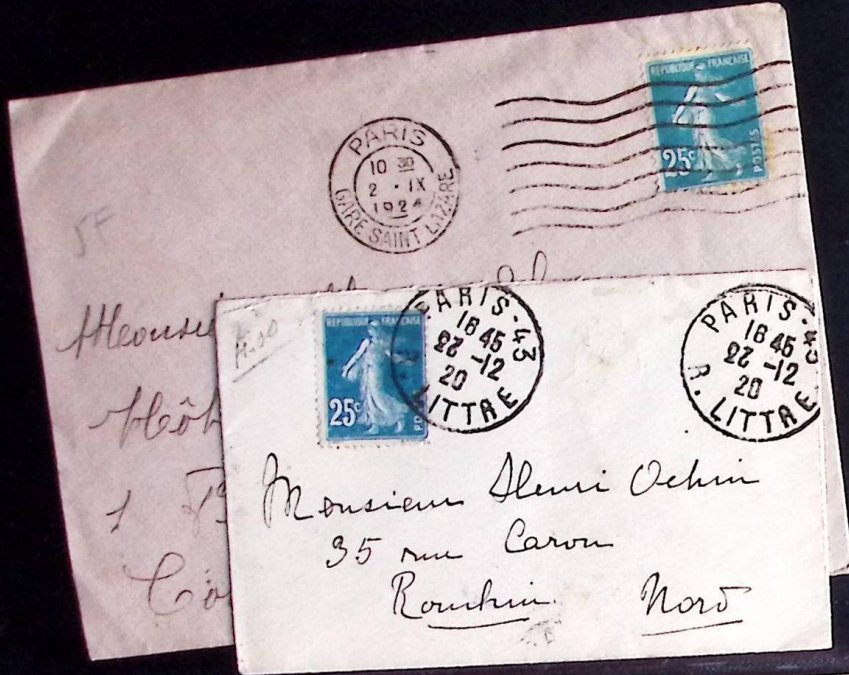 REPUBLIQUE FRANÇAISE
25c
POSTES
PARIS
10 30
2 · IX
1924
GARE SAINT LAZARE
5F
Monsie
Hô
1
Co
REPUBLIQUE FRANÇAISE
25c
PO
PARIS-43
16 45
22 -12
20
R. LITTRE
PARIS-43
16 45
22 -12
20
R. LITTRE
Monsieur Henri
35 rue Carou
Nord